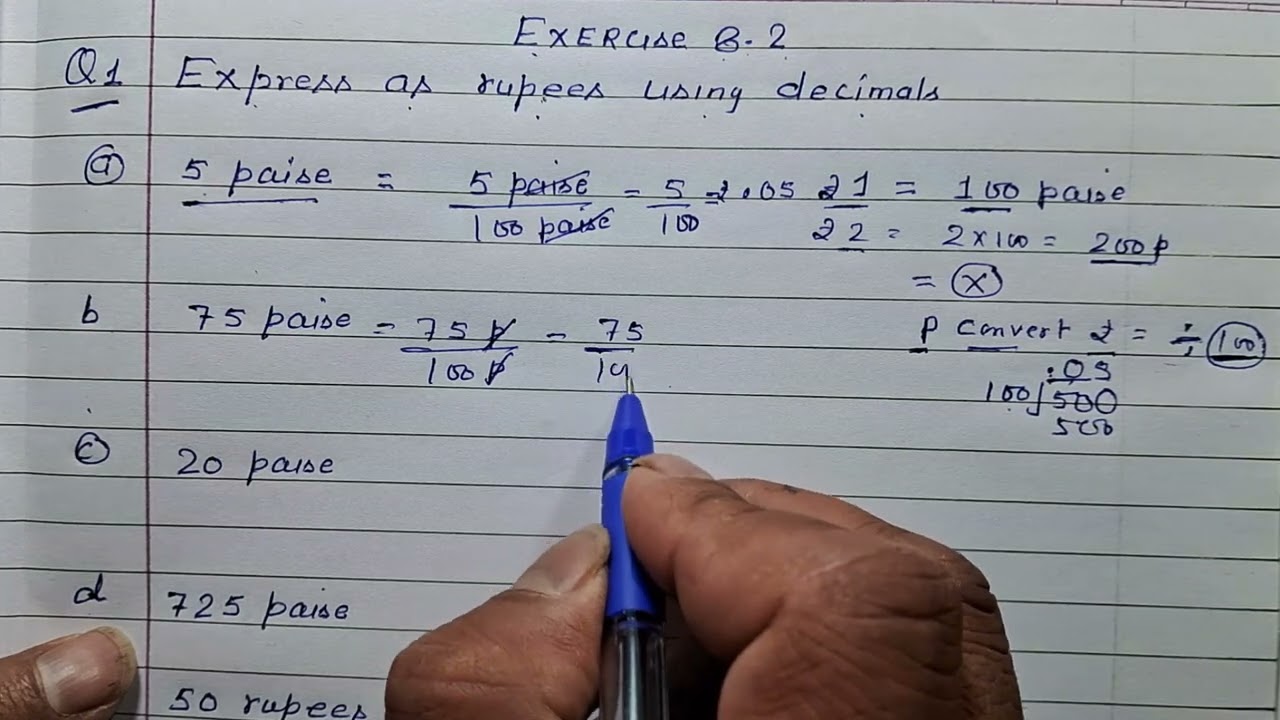 EXERCISE 8.2
Q1 Express as rupees using decimals
a 5 paise = 5 paise / 100 paise = 5/100 = ₹.05 ₹1 = 100 paise
₹2 = 2×100 = 200p
= ×
b 75 paise = 75p / 100p = 75/10
p convert ₹ = ÷ 100
.05
100)500
500
c 20 paise
d 725 paise
50 rupees